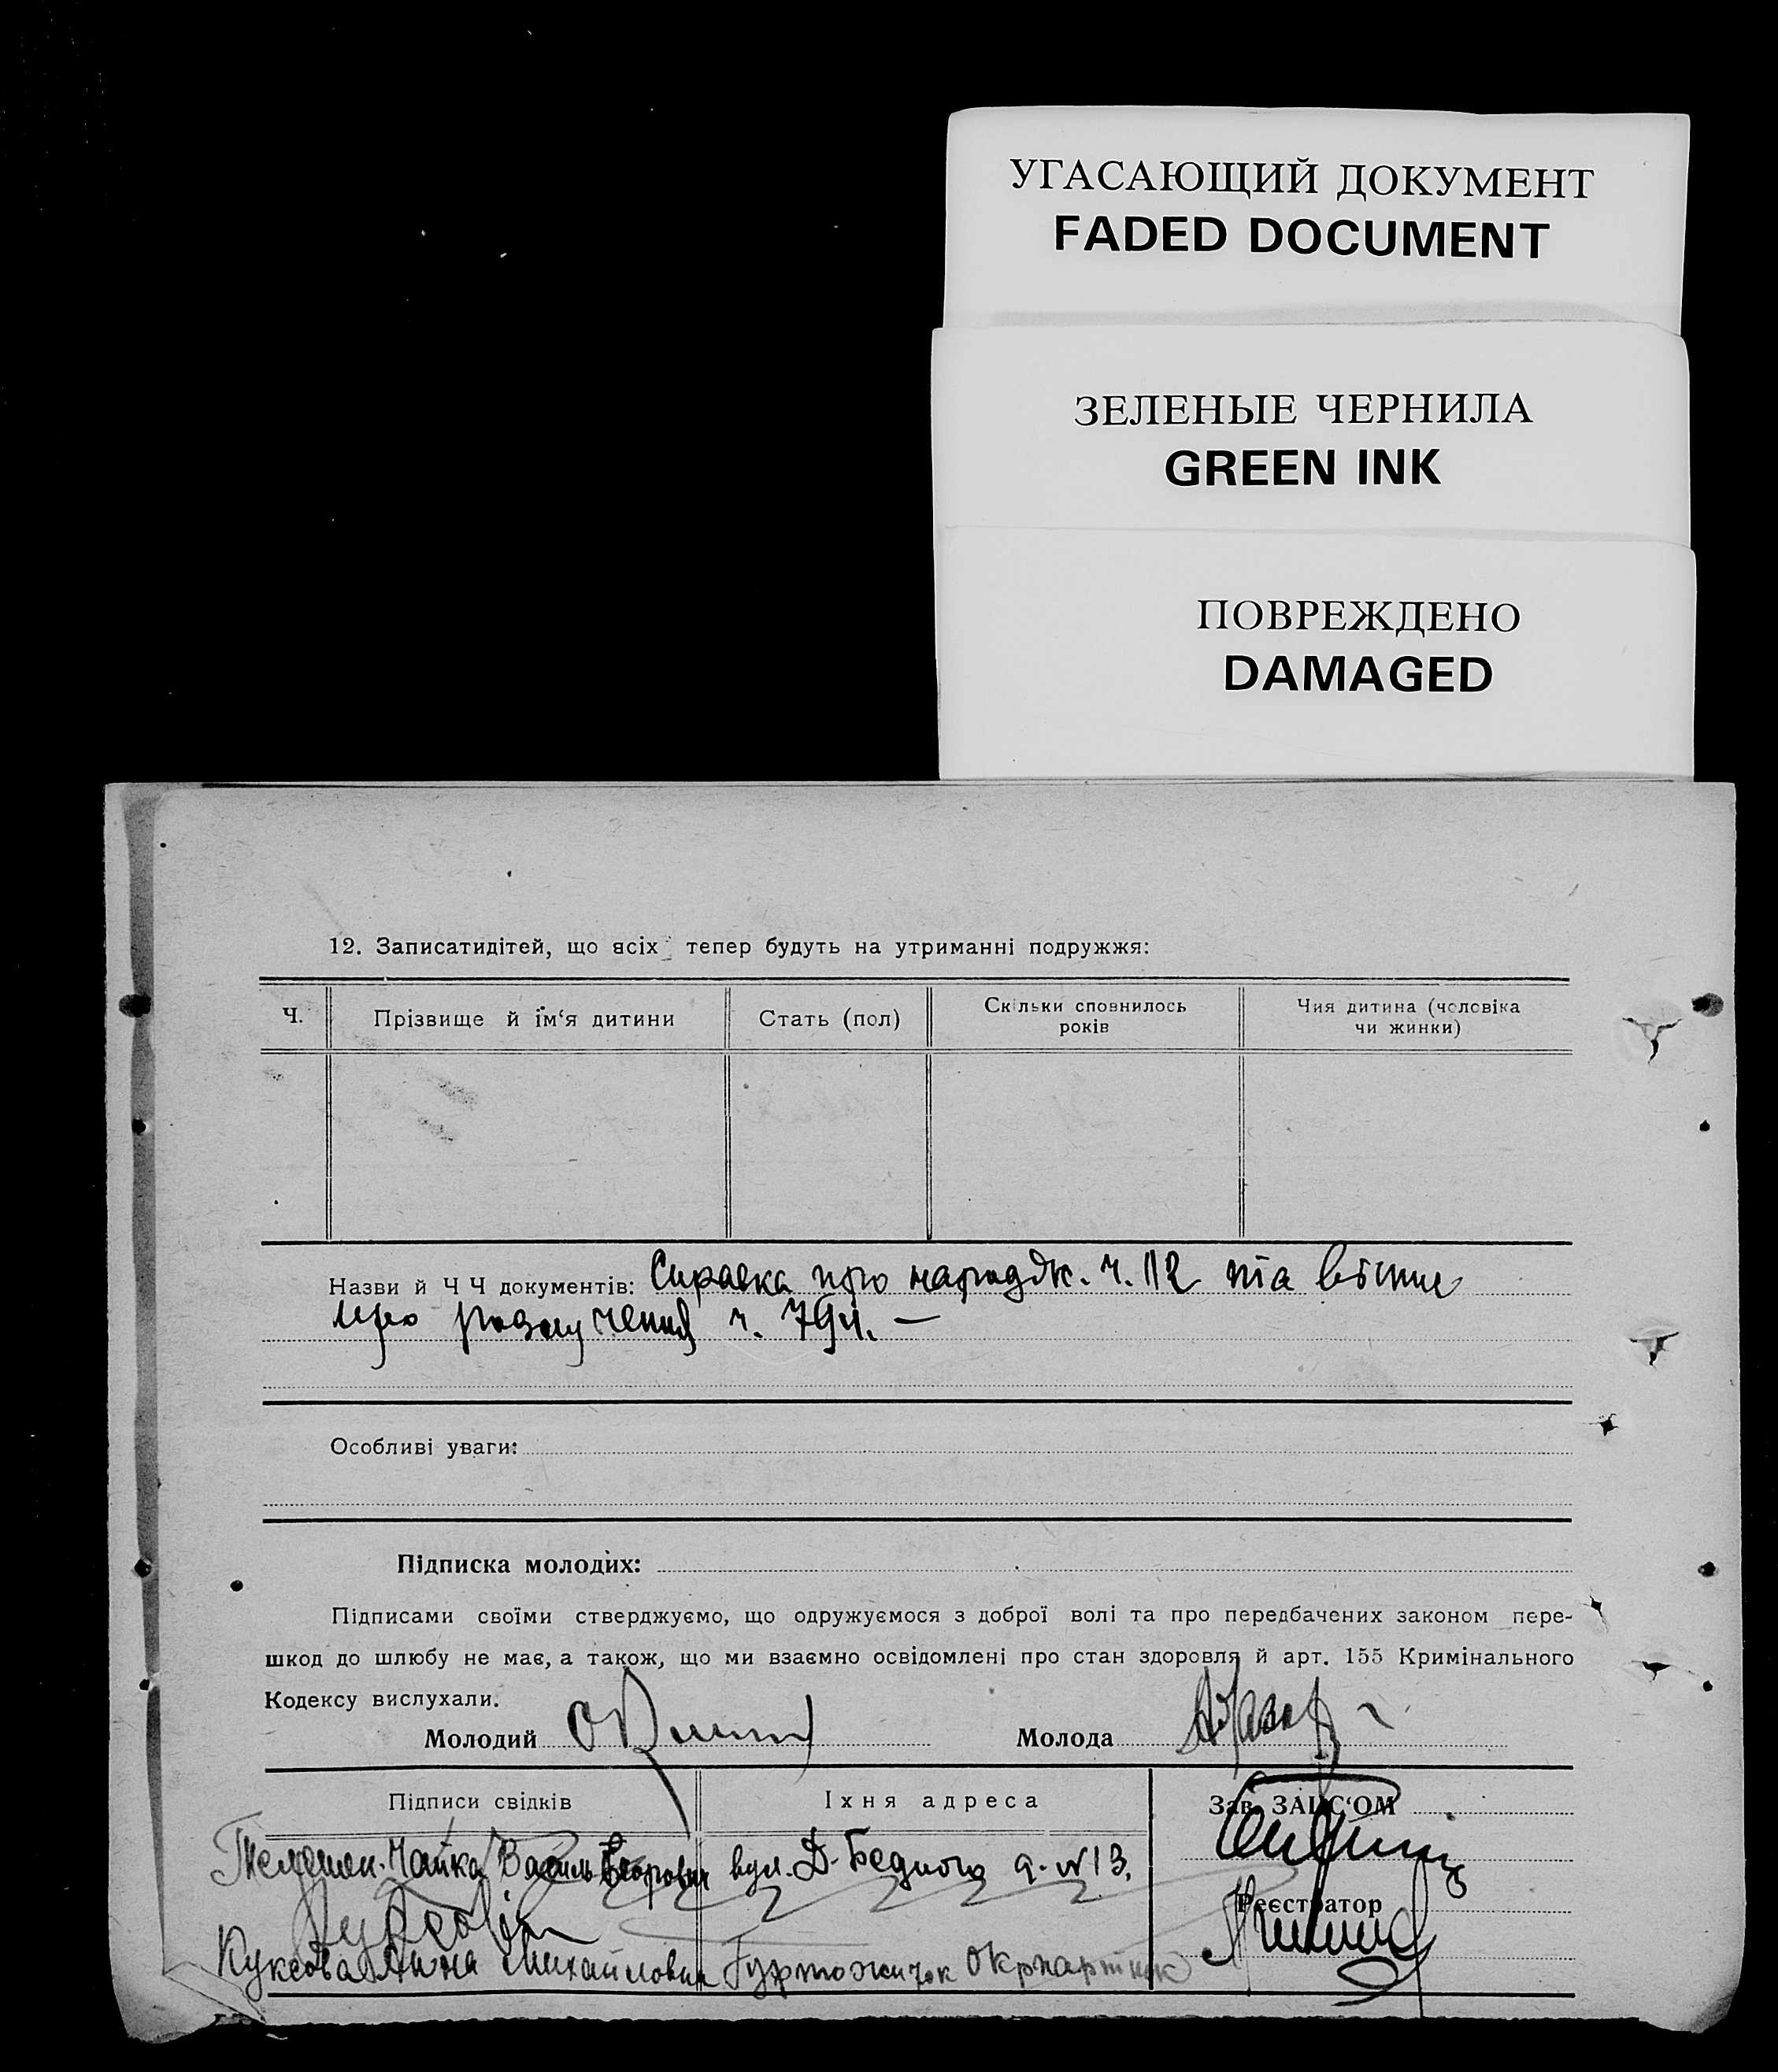 УГАСАЮЩИЙ ДОКУМЕНТ
FADED DOCUMENT
ЗЕЛЕНЫЕ ЧЕРНИЛА
GREEN INK
ПОВРЕЖДЕНО
DAMAGED
12. Записатидітей, що всіх тепер будуть на утриманні подружжя:
Ч.
Прізвище й ім‘я дитини
Стать (пол)
Скільки сповнилось років
Чия дитина (чоловіка чи жинки)
Назви й Ч Ч документів: Справка про народж. ч. 112 та
про розлучення ч. 794. —
Особливі уваги:
Підписка молодих:
Підписами своїми стверджуємо, що одружуємося з доброї волі та про передбачених законом пере-
шкод до шлюбу не має, а також, що ми взаємно освідомлені про стан здоровля й арт. 155 Кримінального
Кодексу вислухали.
Молодий
Молода
Підписи свідків
Їхня адреса
Зав. ЗАГС‘ОМ
Чайка Василь вул. Д. Бедного 13.
Реєстратор
Куксова Анна Михайловна Гуртожиток Окрпартшк